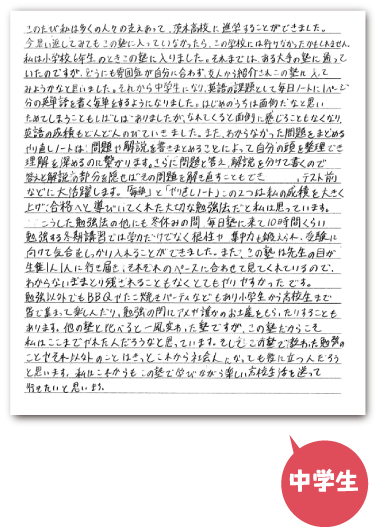 このたび私は多くの人々の支えあって、茨木高校に進学することができました。
今思い返してみてもこの塾に入っていなかったら、この学校には行けなかったかもしれません。
私は小学校6年生のときこの塾に入りました。それまでは、ある大手の塾に通っ
ていたのですが、どうにも雰囲気が自分に合わず、友人から紹介されこの塾に入って
みようかなと思いました。それから中学生になり、英語の課題として毎日ノートに1ページ
分の英単語を書く毎単をするようになりました。はじめのうちは面倒だなと思い
ためてしまうこともしばしばありましたが、なれてくると面倒に感じることもなくなり、
英語の成績もどんどんのびていきました。また、わからなかった問題をまとめる
やり直しノートは、問題や解説を書きまとめることによって自分の頭を整理でき
理解を深めるのに繋がります。さらに問題と答え、解説を分けて書くので
答えと解説の部分を隠せばその問題を解き直すこともでき テスト前
などに大活躍します。「毎単」と「やり直しノート」この2つは私の成績を大きく
上げ、合格へと導びいてくれた大切な勉強法だと私は思っています。
こうした勉強法の他にも冬休みの間、毎日塾に来て10時間くらい
勉強する冬期講習では学力だけでなく根性や集中力も鍛えられ、受験に
向けて気合をしっかり入れることができました。また、この塾は先生の目が
生徒1人1人に行き届き、それぞれのペースに合わせて見てくれているので、
わからないままとり残されることもなくとてもやりやすかったです。
勉強以外でもBBQやたこ焼きパーティなどもあり小学生から高校生まで
皆で集まって楽しんだり、勉強の間にアメや誰かのお土産をもらったりすることも
あります。他の塾と比べると一風変わった塾ですが、この塾だからこそ
私はここまでやれたんだろうなと思っています。そしてこの塾で教わった勉強の
ことやそれ以外のことはきっとこれから社会人になっても役に立つんだろう
と思います。私はこれからもこの塾で学びながら楽しい高校生活を送って
行きたいと思います。
中学生